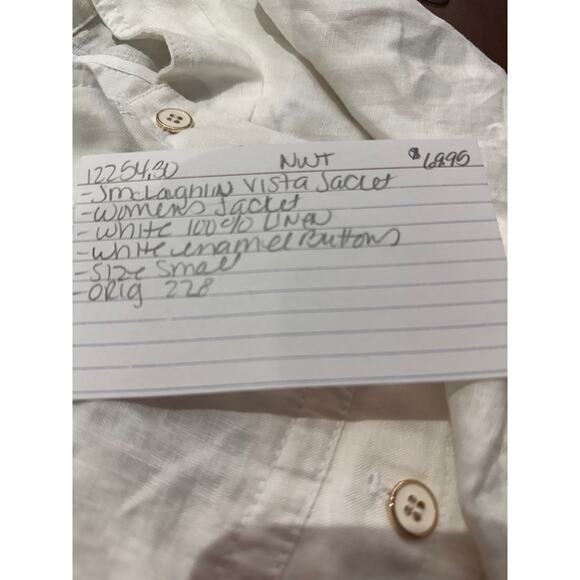 12254.30 NWT $69.95
- JMcLaghlin Vista Jacket
- Womens Jacket
- White 100% Linen
- White enamel Buttons
- Size Small
- ORIG 228